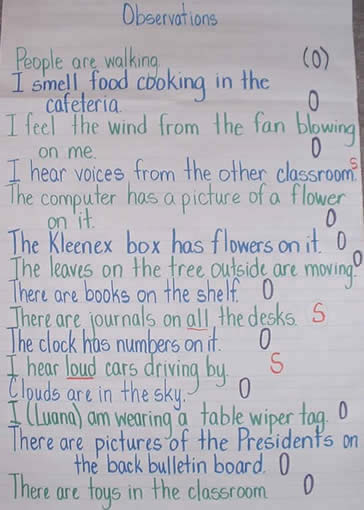 Observations
People are walking. (O)
I smell food cooking in the
cafeteria. O
I feel the wind from the fan blowing
on me. O
I hear voices from the other classroom. S
The computer has a picture of a flower
on it. O
The Kleenex box has flowers on it. O
The leaves on the tree outside are moving. O
There are books on the shelf. O
There are journals on all the desks. S
The clock has numbers on it. O
I hear loud cars driving by. S
Clouds are in the sky. O
I (Luana) am wearing a table wiper tag. O
There are pictures of the Presidents on
the back bulletin board. O
There are toys in the classroom O